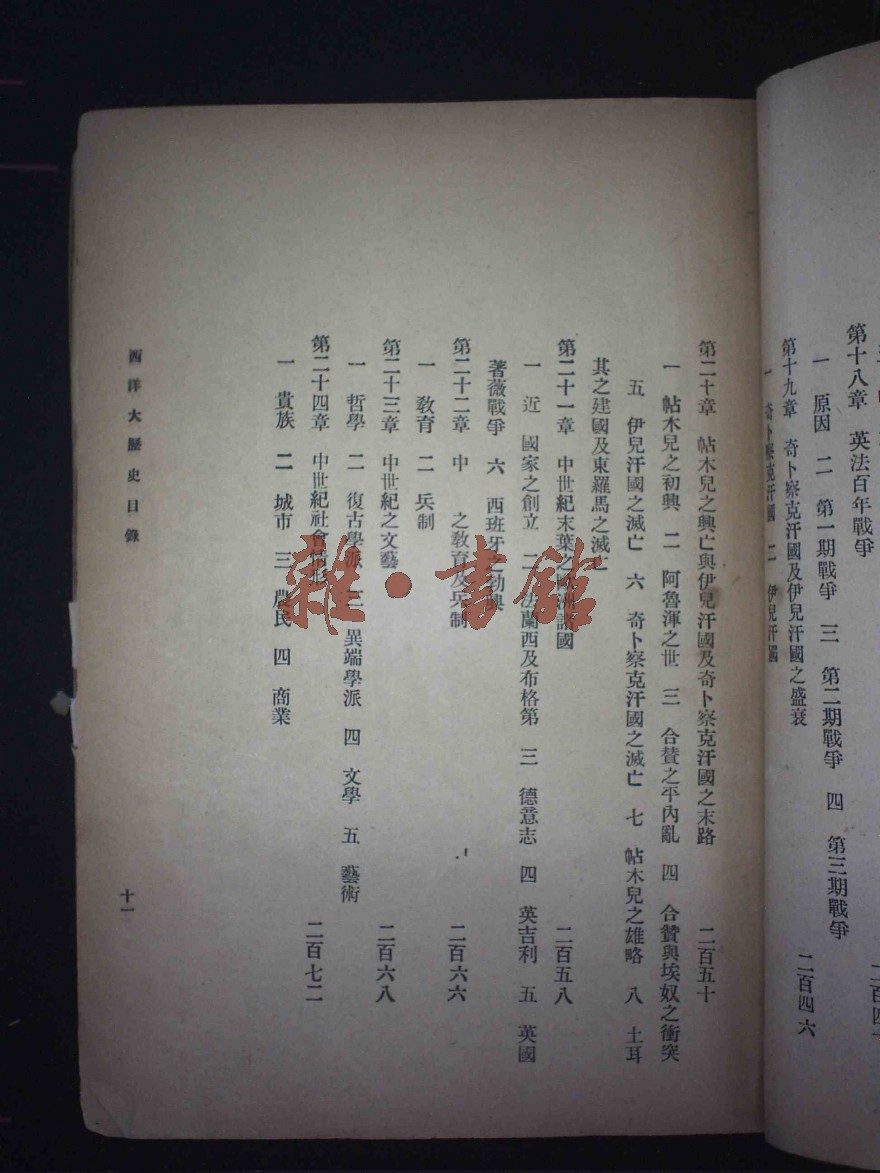 第十八章　英法百年戰爭
一　原因　二　第一期戰爭　三　第二期戰爭　四　第三期戰爭
第十九章　奇卜察克汗國及伊兒汗國之盛衰　二百四六
一　奇卜察克汗國　二　伊兒汗國
第二十章　帖木兒之興亡與伊兒汗國及奇卜察克汗國之末路　二百五十
一　帖木兒之初興　二　阿魯渾之世　三　合贊之平內亂　四　合贊與埃奴之衝突
五　伊兒汗國之滅亡　六　奇卜察克汗國之滅亡　七　帖木兒之雄略　八　土耳
其之建國及東羅馬之滅亡
第二十一章　中世紀末葉之歐洲諸國　二百五八
一　近　國家之創立　二　法蘭西及布格第　三　德意志　四　英吉利　五　英國
著薇戰爭　六　西班牙之勃興
第二十二章　中　之敎育及兵制　二百六六
一　敎育　二　兵制
第二十三章　中世紀之文藝　二百六八
一　哲學　二　復古學派　三　異端學派　四　文學　五　藝術
第二十四章　中世紀社會情形　二百七二
一　貴族　二　城市　三　農民　四　商業
西洋大歷史目錄
十一
雜·書館